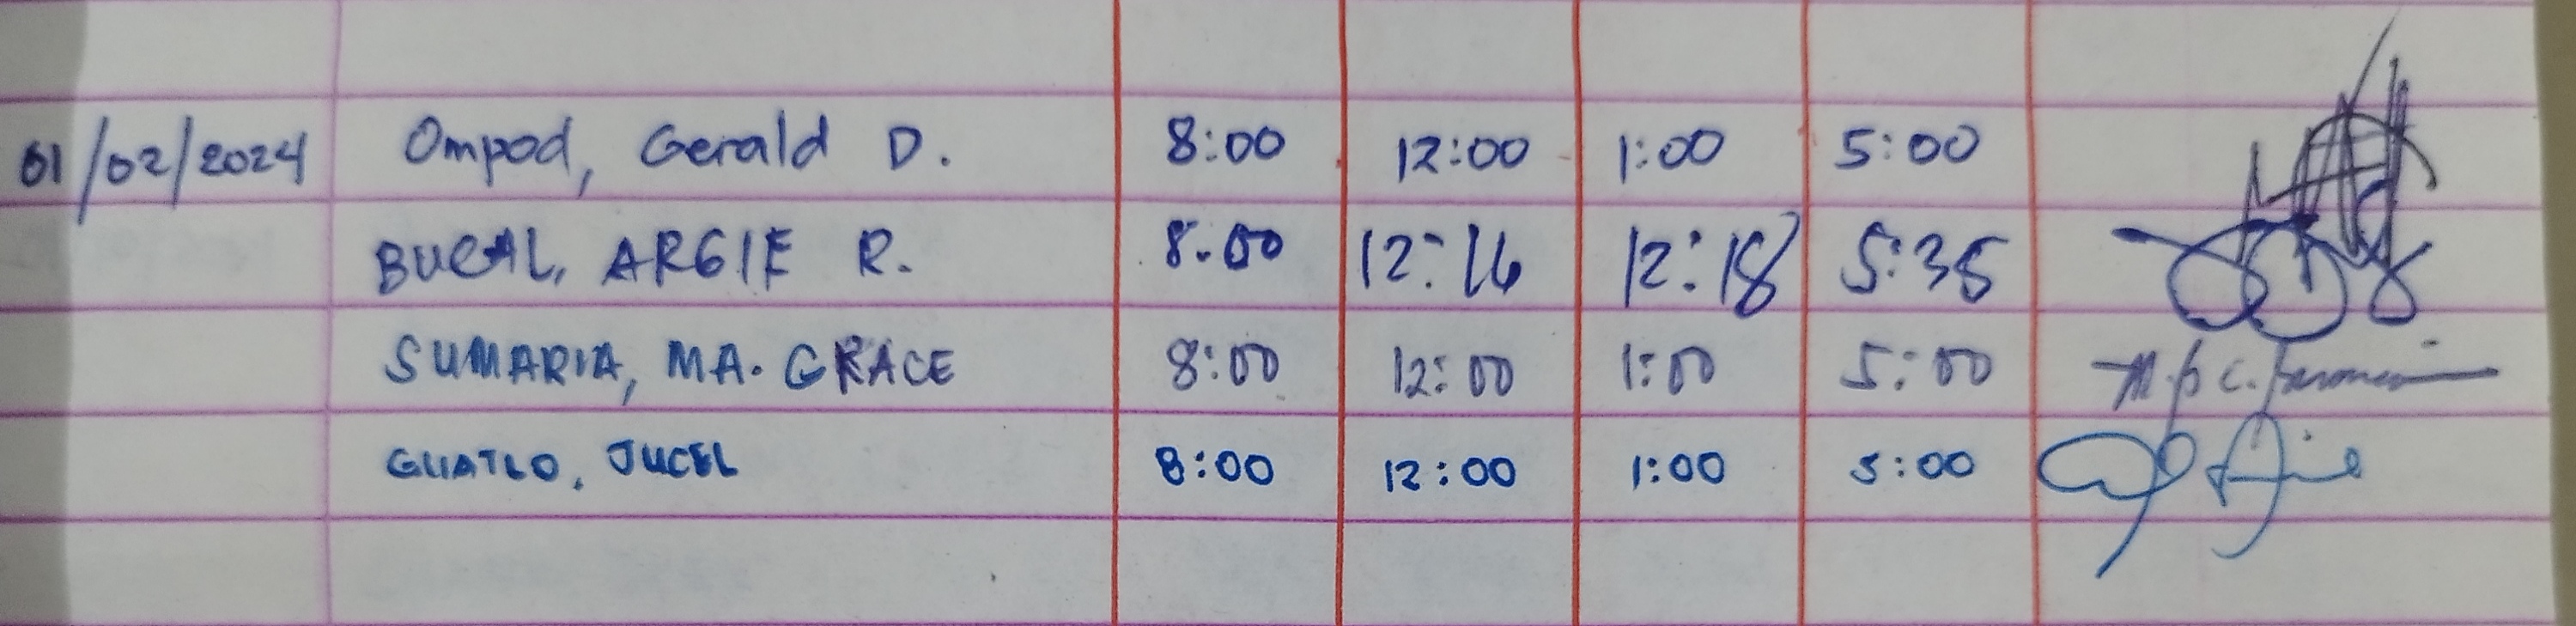 01/02/2024 Ompod, Gerald D. 8:00 12:00 1:00 5:00
BUCAL, ARGIE R. 8:00 12:16 12:18 5:35
SUMARIA, MA. GRACE 8:00 12:00 1:00 5:00
GUATLO, JUCEL 8:00 12:00 1:00 5:00